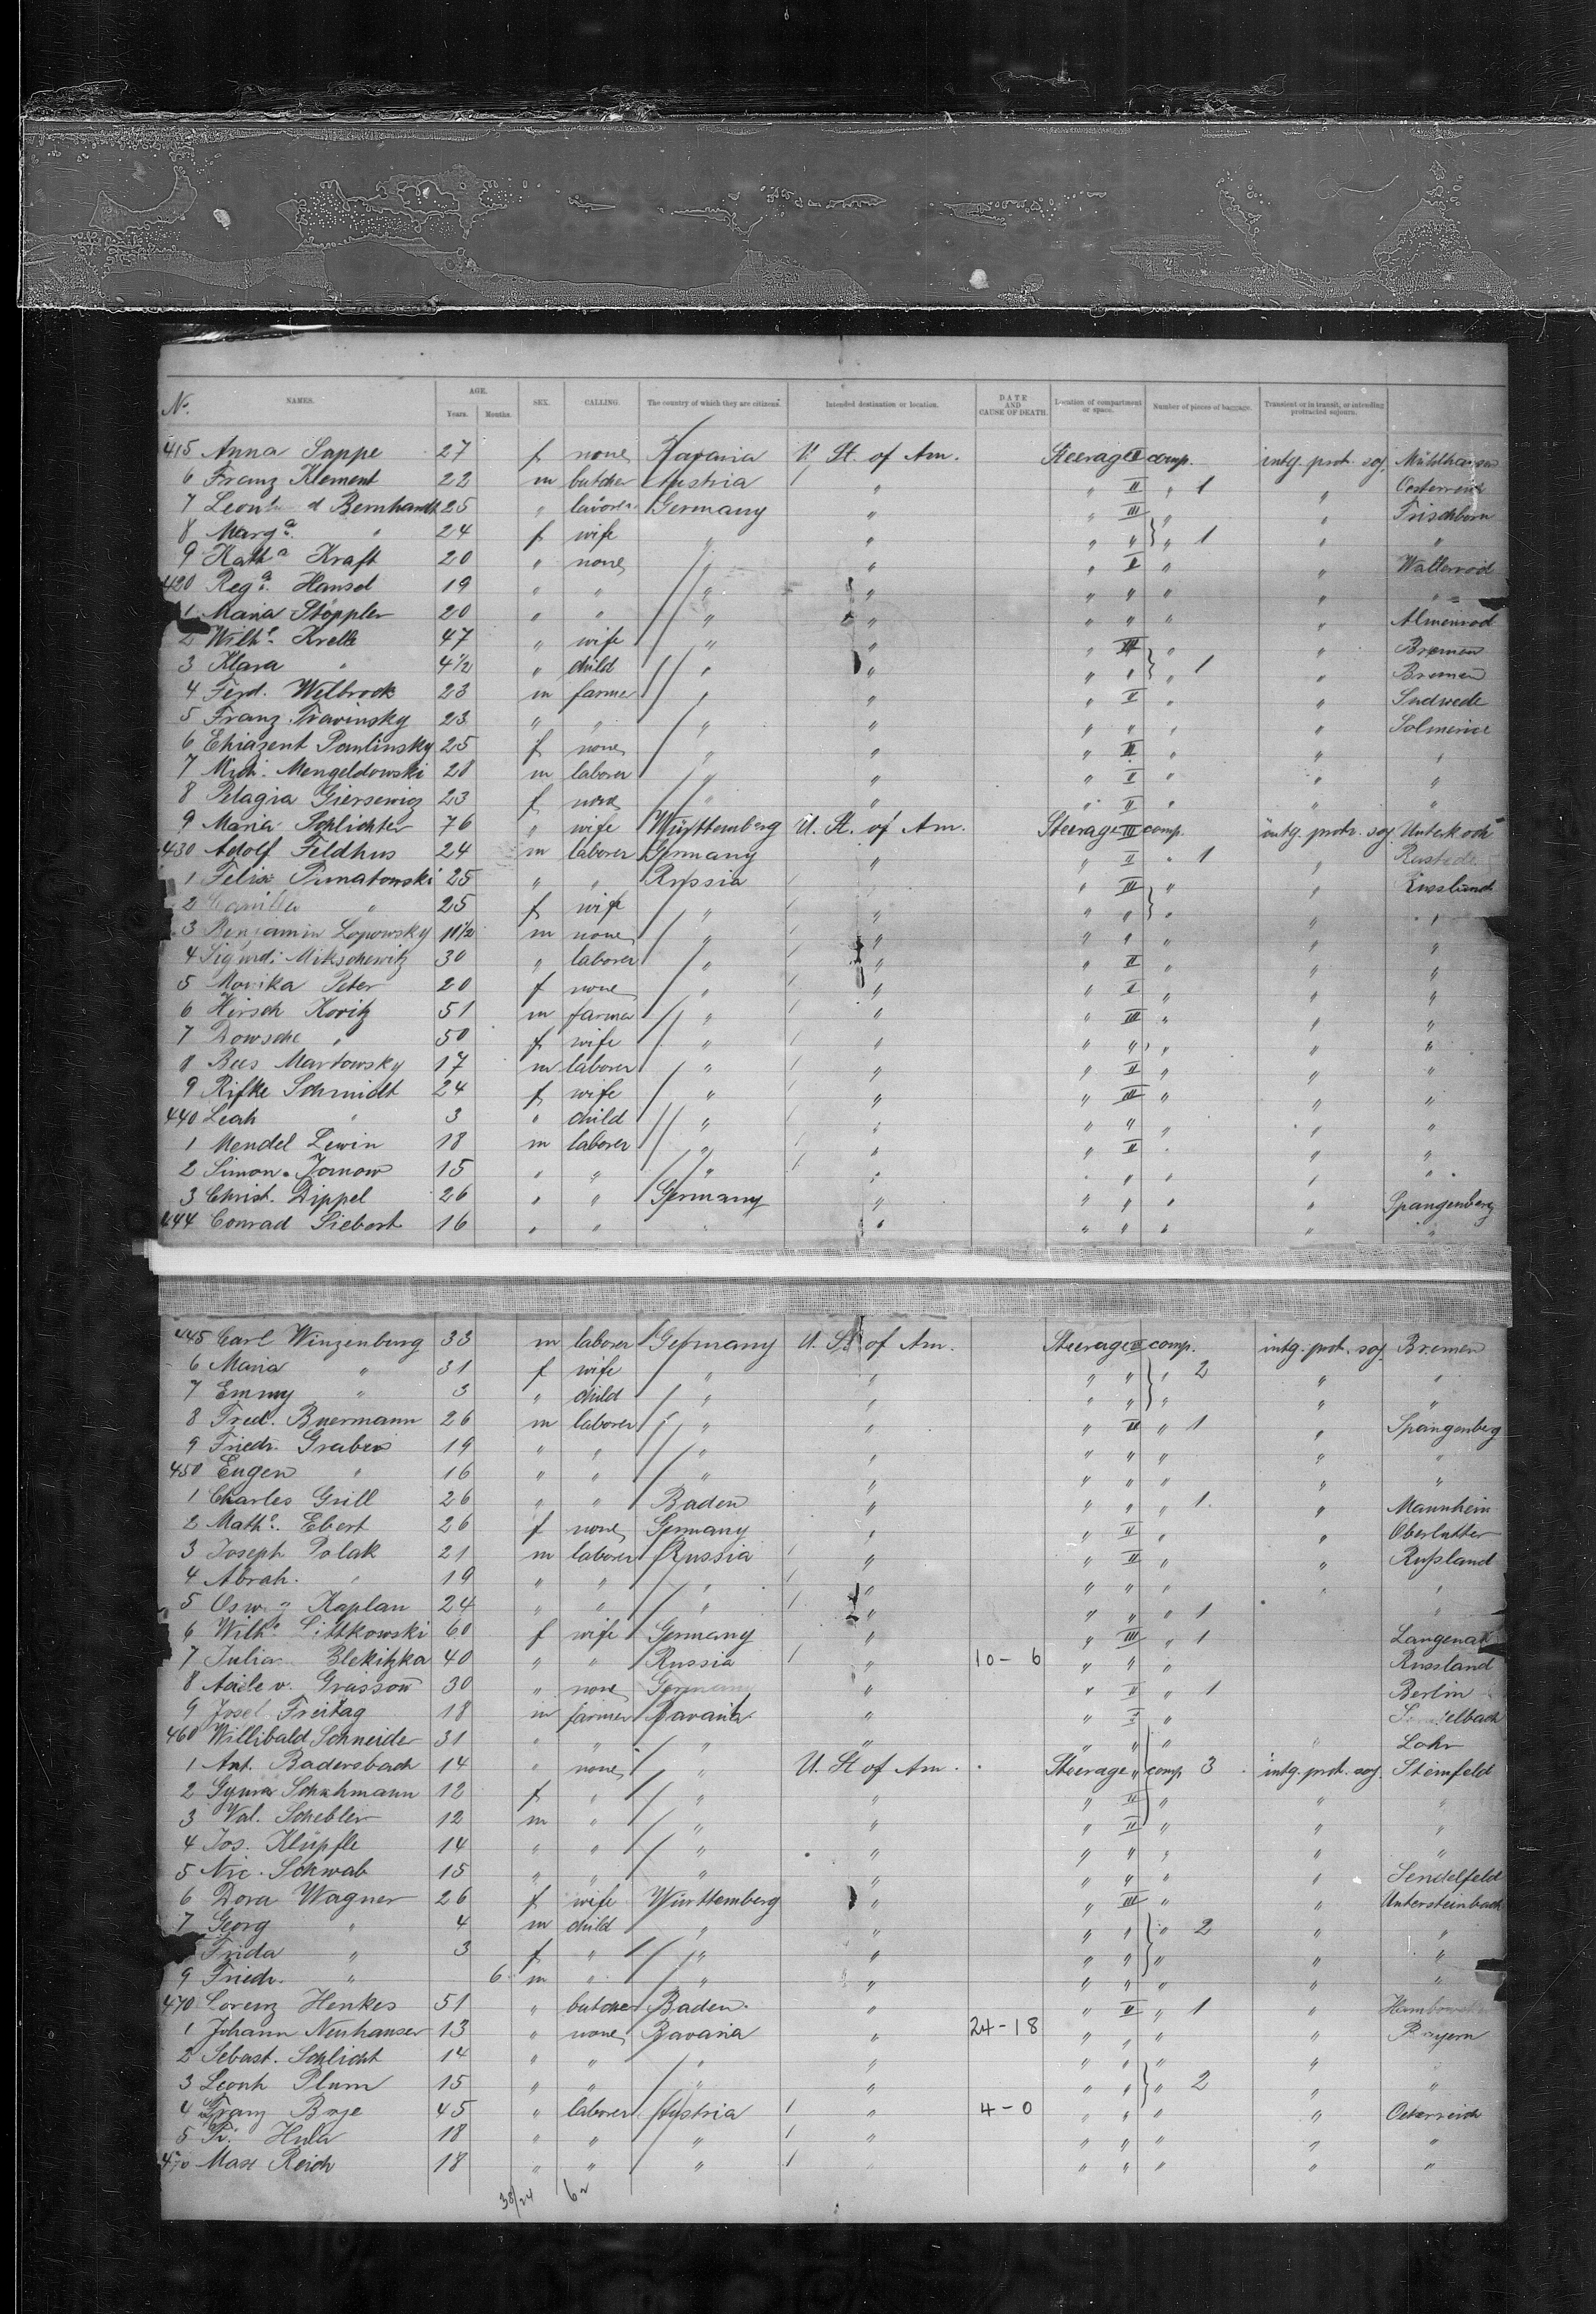 No. NAMES. AGE. Years. Months. SEX. CALLING. The country of which they are citizens. Intended destination or location. DATE AND CAUSE OF DEATH. Location of compartment or space. Number of pieces of baggage. Transient or in transit, or intending protracted sojourn.
415 Anna Sappe 27 f none Bavaria U. St. of Am. Steerage II comp. intg. prot. soj. Mühlhausen
6 Franz Klement 22 m butcher Austria " " II " 1 " Oesterreich
7 Leonhard Bernhardt 25 " laborer Germany " " III " " Frischborn
8 Marga. " 24 f wife " " " " " 1 " "
9 Katha Kraft 20 " none " " " II " " Wallenrod
420 Rega. Hansel 19 " " " " " " " " "
1 Maria Stöppler 20 " " " " " " " " Almenrod
2 Wilhe. Krelle 47 " wife " " " III " " Bremen
3 Klara " 4 1/2 " child " " " " " 1 " Bremen
4 Ferd. Welbrock 23 m farmer " " " II " " Sudwede
5 Franz Travinsky 23 " " " " " " " "
6 Paulinsky 25 f none " " " " " "
7 Mich. Mengeldowski 28 m laborer " " " II " " "
8 Pelagia Giersewicz 23 f none " " " II " " "
9 Maria Schlichter 76 " wife Württemberg U. St. of Am. Steerage III comp. intg. protr. soj. Unterkoch
430 Adolf Feldhus 24 m laborer Germany " " II " 1 " Rastede
1 Felix 25 " " Russia " III " " Russland
2 " 25 f wife " " " " " " "
3 Benjamin Lopowsky 11 1/2 m none " " " " " " "
4 Mikschewitz 30 " laborer " " " II " " "
5 Monika Peter 20 f none " " " II " " "
6 Hirsch Kovitz 51 m farmer " " " III " " "
7 Dowsche " 50 f wife " " " " " " "
8 Bees Martowsky 17 m laborer " " " II " " "
9 Rifke Schmidt 24 f wife " " " III " " "
440 Leah " 3 " child " " " " " " "
1 Mendel Lewin 18 m laborer " " " II " " "
2 Simon Jornow 15 " " " " " " " " "
3 Christ. Dippel 26 " " Germany " " " " " Spangenberg
444 Conrad Siebert 16 " " " " " " " "
445 Carl Winzenburg 33 m laborer Germany U. St. of Am. Steerage comp. intg. prot. soj. Bremen
6 Maria " 31 f wife " " " " " 2 " "
7 Emmy " 3 " child " " " " " " "
8 Fred. Buermann 26 m laborer " " " II " 1 " Spangenberg
9 Friedr. Grabes 19 " " " " " " " " "
450 Eugen " 16 " " " " " " " " "
1 Charles Grill 26 " " Baden " " " " 1 " Mannheim
2 Mathe. Ebert 26 f none Germany " " II " " Oberlutter
3 Joseph Polak 21 m laborer Russia " " II " " Rußland
4 Abrah. " 19 " " " " " " " " "
5 Kaplan 24 " " " " " " " 1 "
6 Wilhe. Littkowski 60 f wife Germany " " III " 1 Langenau
7 Julian Blekitzka 40 " " Russia " 10 - 6 " " " Russland
8 Adele v. Grassow 30 " none Germany " " II " 1 Berlin
9 Josef Freitag 18 m farmer Bavaria " " " "
460 Willibald Schneider 31 " " " " " " " " Lohr
1 Ant. Badersbach 14 " none " U. St. of Am. Steerage " comp 3 intg. prot. soj. Steinfeld
2 Schuhmann 12 f " " " " III " " "
3 Val. Schebler 12 m " " " " II " "
4 Jos. Klüpfle 14 " " " " " " " " "
5 Nic. Schwab 15 " " " " " " " " Sendelfeld
6 Dora Wagner 26 f wife Württemberg " " III " " Untersteinbach
7 Georg " 4 m child " " " " " 2 " "
8 Frida " 3 f " " " " " " " "
9 Friedr. " 6 m " " " " " " " "
470 Lorenz Henkes 51 " butcher Baden " " II " 1 "
1 Johann Neuhauser 13 " none Bavaria " 24 - 18 " " " " Bayern
2 Sebast. Schlicht 14 " " " " " " " "
3 Leonh Plum 15 " " " " " " " 2 " "
4 Franz Boje 45 " laborer Austria " 4 - 0 " " " " Oesterreich
5 Fr. Hula 18 " " " " " " " " "
Max Reich 18 " " " " " " " "
38/24 62